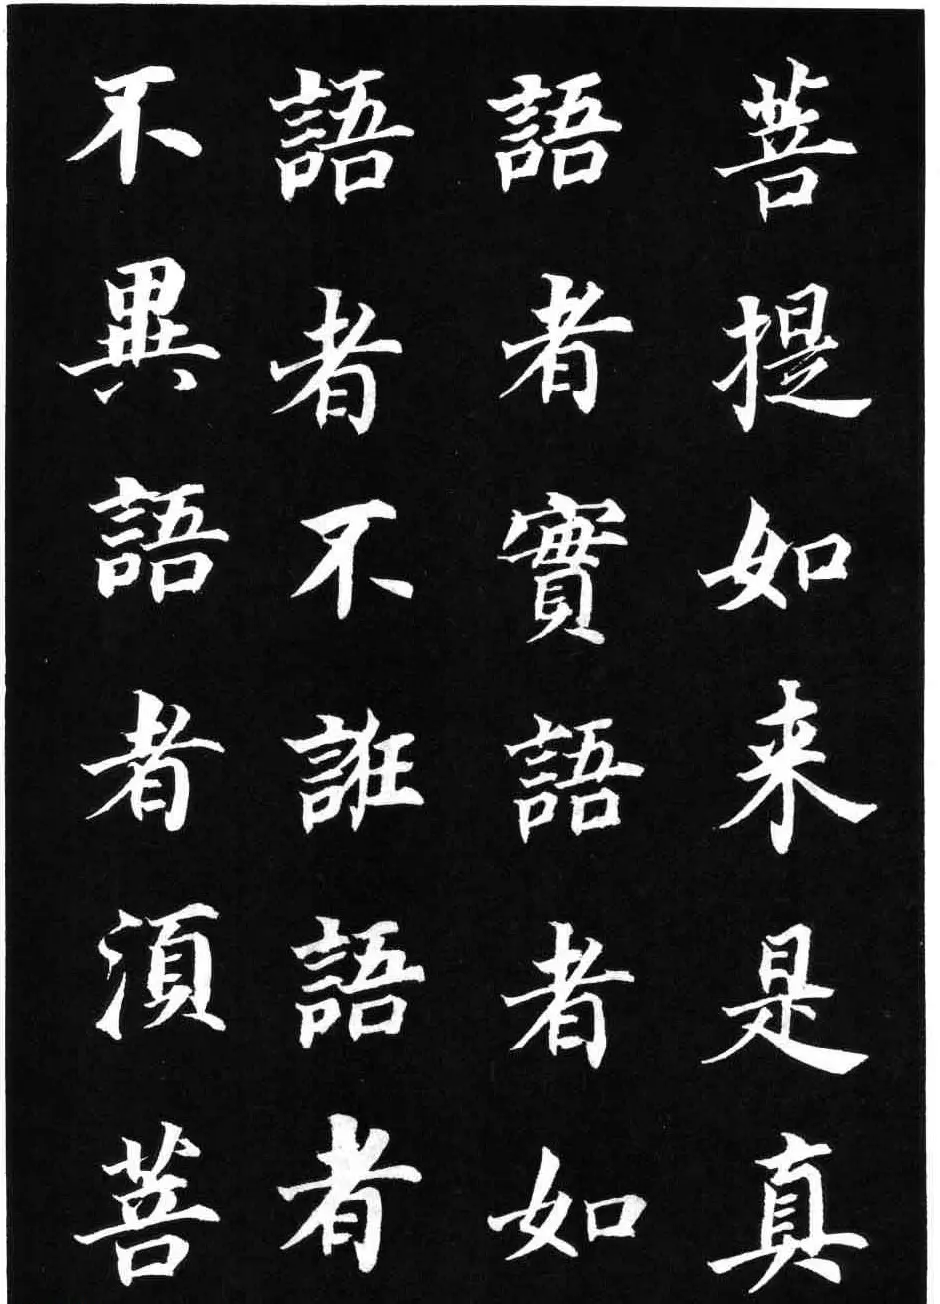 菩提如来是真
語者實語者如
語者不誑語者
不異語者湏菩